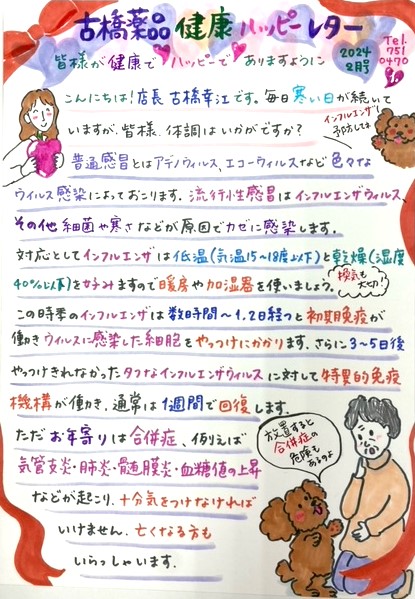 古橋薬品 健康ハッピーレター
2024
2月号
Tel.
751
0470
皆様が健康でハッピーでありますように
こんにちは！店長 古橋幸江です。毎日寒い日が続いて
いますが、皆様、体調はいかがですか？
インフルエンザ
予防してネ
普通感冒とはアデノウィルス、エコーウィルスなど色々な
ウイルス感染によっておこります。流行性感冒はインフルエンザウィルス、
その他細菌や寒さなどが原因でカゼに感染します。
対応としてインフルエンザは低温(気温15〜18度以下)と乾燥(湿度
40%以下)を好みますので暖房や加湿器を使いましょう。
換気も
大切！
この時季のインフルエンザは数時間〜1、2日経つと初期免疫が
働きウイルスに感染した細胞をやっつけにかかります。さらに3〜5日後
やっつけきれなかったタフなインフルエンザウィルスに対して特異的免疫
機構が働き、通常は1週間で回復します。
ただお年寄りは合併症、例えば
気管支炎・肺炎・髄膜炎・血糖値の上昇
などが起こり、十分気をつけなければ
いけません。亡くなる方も
いらっしゃいます。
放置すると
合併症の
危険も
あるのよ